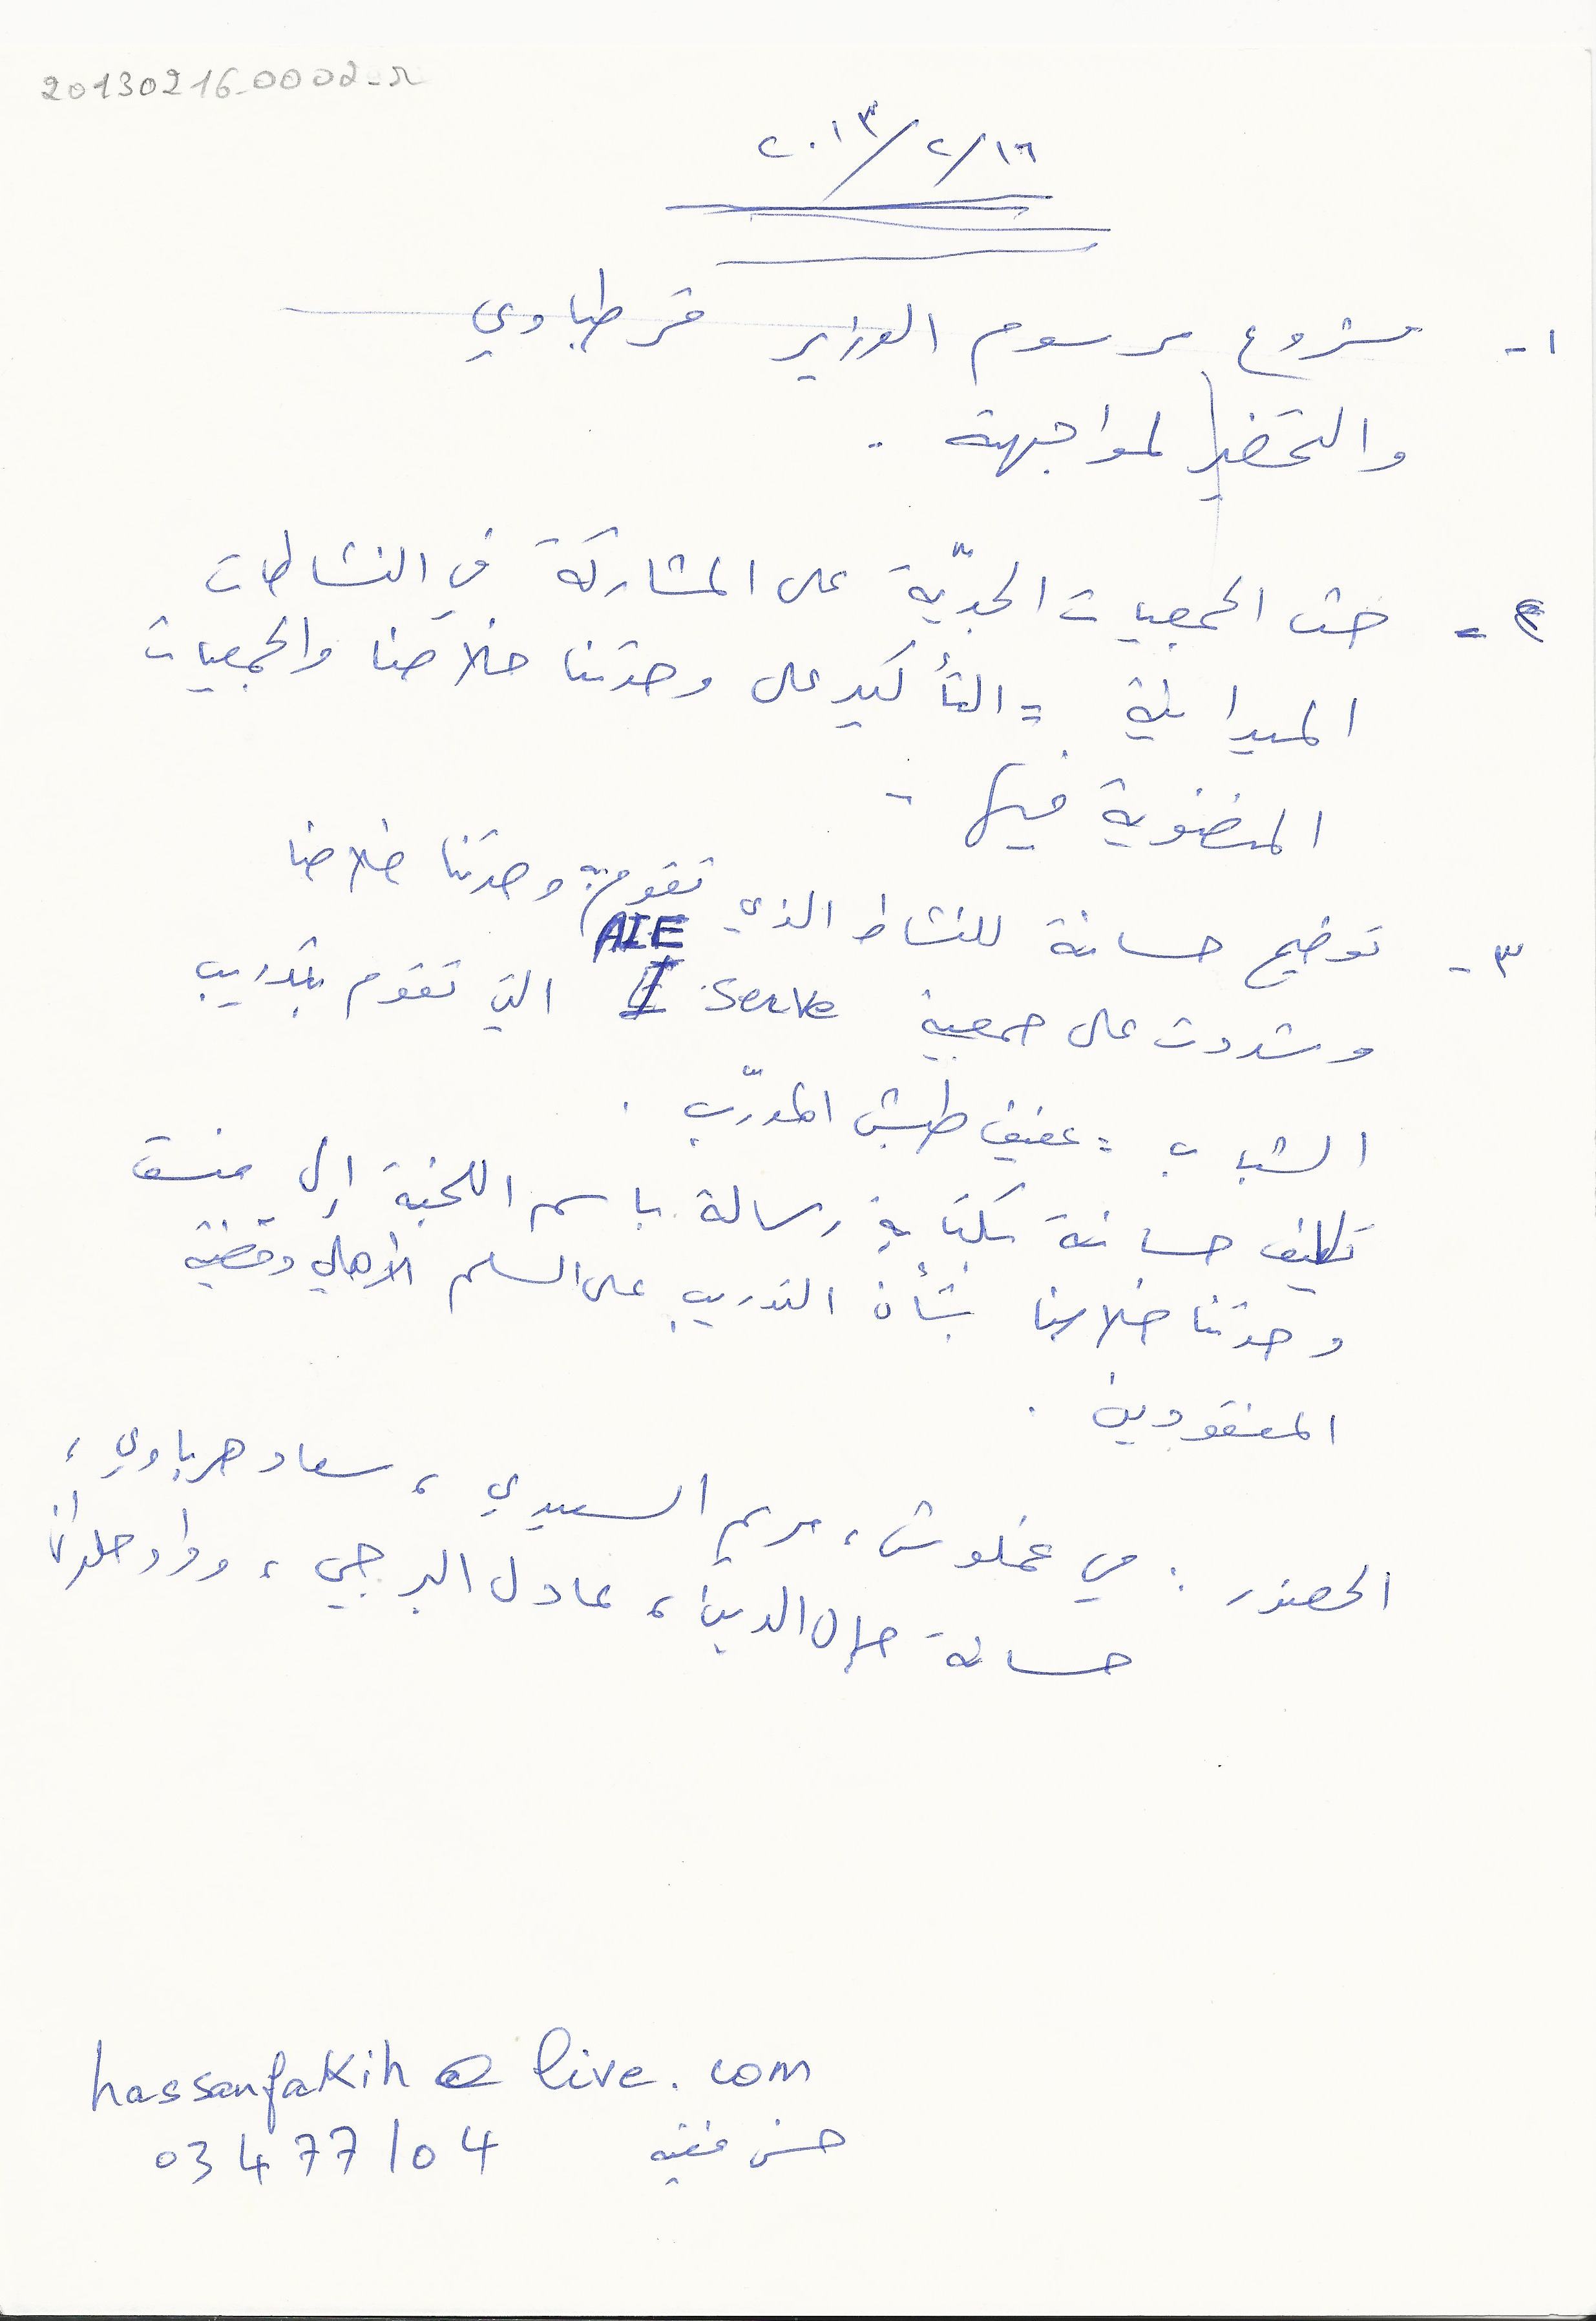 20130216-0002-r
٢٠١٣/٢/١٦
١- مشروع مرسوم الوزير قرطباوي
والتحضير لمواجهته .
٢- حث الجمعيات الجدّية على المشاركة في النشاطات
الميدانية = التأكيد على وحدتنا خلاصنا والجمعيات
المنضوية فيها -
٣- توضيح حسانة للنشاط الذي تقوم به وحدتنا خلاصنا
AIE
وشددت على جمعية I serve التي تقوم بتدريب
الشباب = عفيف طبش المدرّب .
تكليف حسانة بكتابة رسالة باسم اللجنة إلى منسق
وحدتنا خلاصنا بشأن التدريب على السلم الأهلي وقضية
المفقودين .
الحضور : مي عملوش ، مريم السعيدي ، سعاد هرباوي ،
حسانة جمال الدين ، عادل البرجي ، وداد حلواني
hassanfakih@live.com
03477104 حسن فقيه